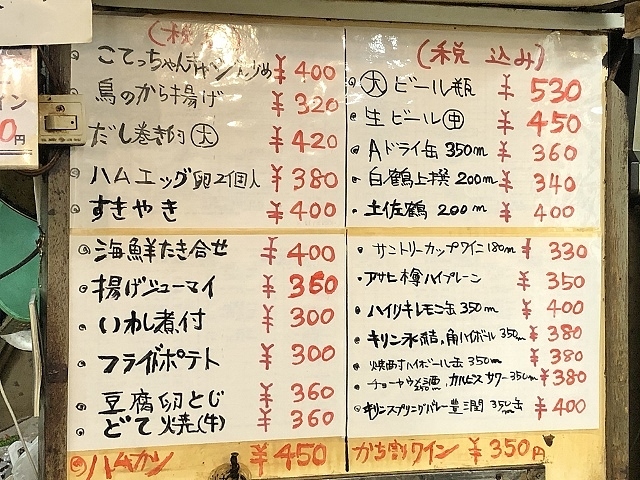 (税
こてっちゃんキャベツ炒め ¥400
鳥のから揚げ ¥320
だし巻き(大) ¥420
ハムエッグ卵2個入 ¥380
すきやき ¥400
海鮮たき合せ ¥400
揚げシューマイ ¥350
いわし煮付 ¥300
フライドポテト ¥300
豆腐卵とじ ¥360
どて焼(牛) ¥360
ハムカツ ¥450
(税込み)
大ビール瓶 ¥530
生ビール中 ¥450
Aドライ缶 350m ¥360
白鶴上撰 200m ¥340
土佐鶴 200m ¥400
サントリーカップワイン180m ¥330
アサヒ樽ハイプレーン ¥350
ハイリキレモン缶350m ¥400
キリン氷結,角ハイボール350m ¥380
焼酎ハイボール缶350m ¥380
チョーヤ梅酒,カルピスサワー350m ¥380
キリンスプリングバレー豊潤350m缶 ¥400
がち割りワイン ¥350円
イン
0円